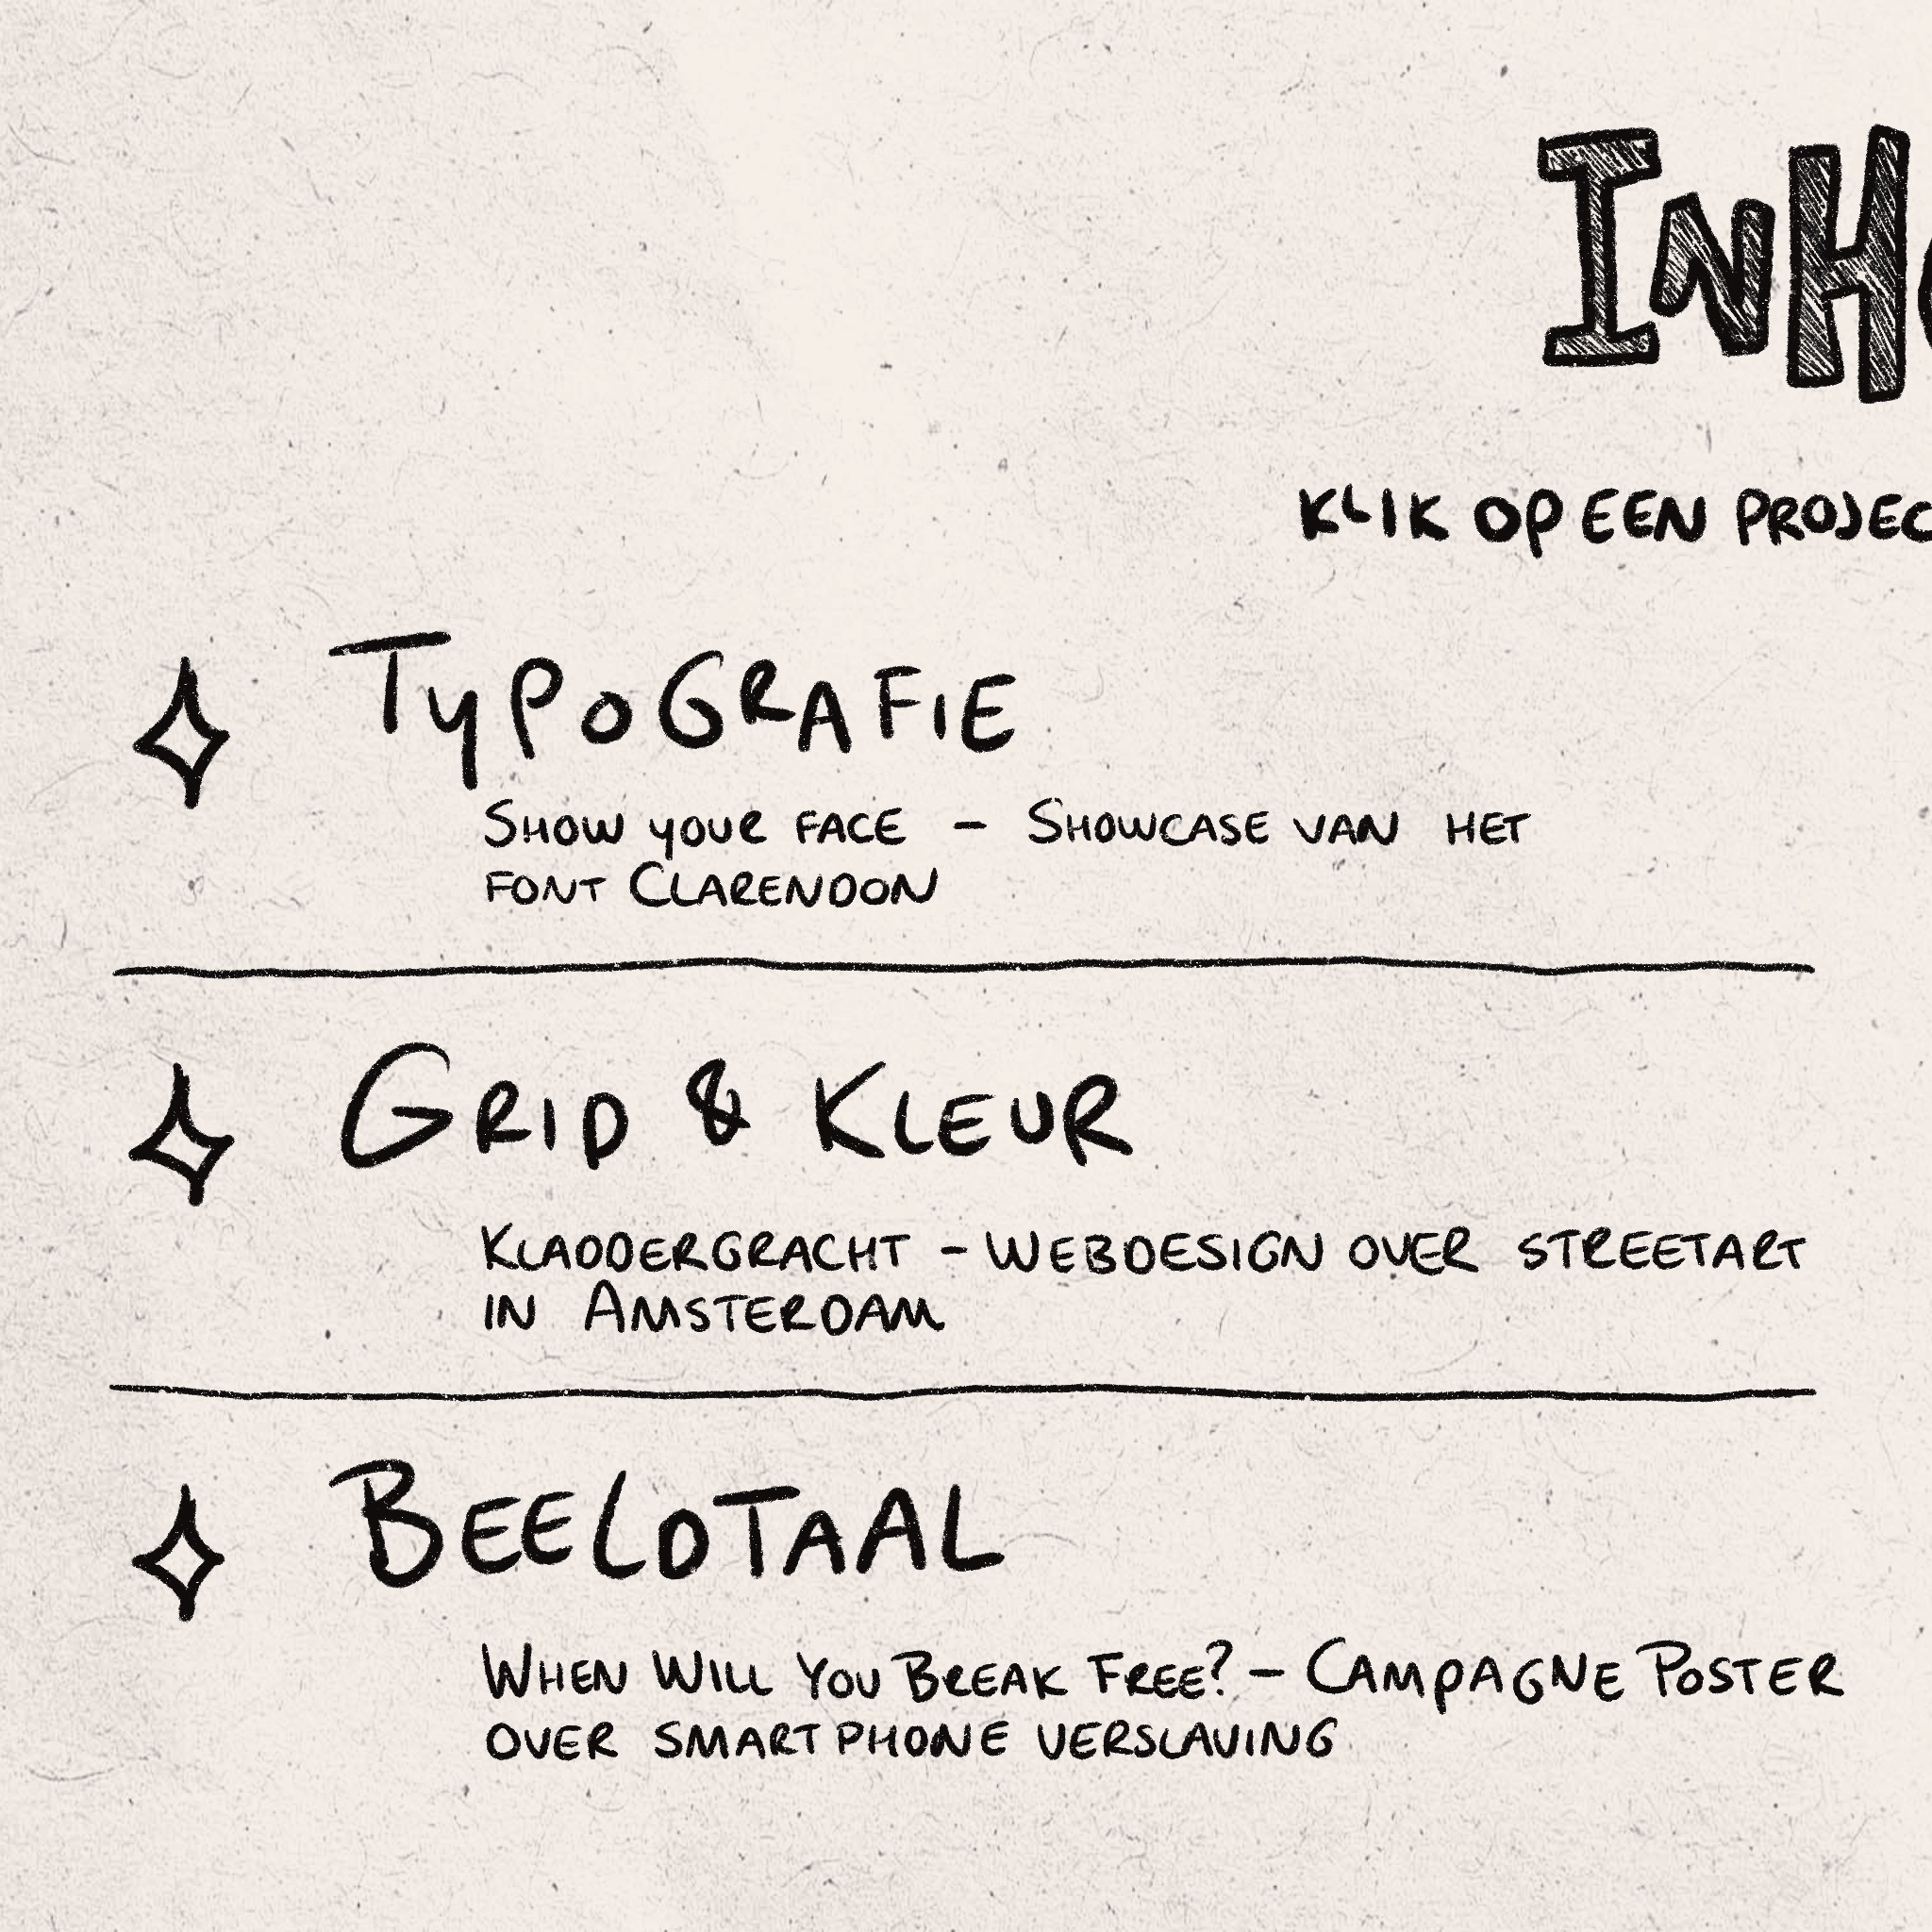 INH
KLIK OP EEN PROJEC
TYPOGRAFIE
SHOW YOUR FACE - SHOWCASE VAN HET
FONT CLARENDON
GRID & KLEUR
KLADDERGRACHT - WEBDESIGN OVER STREETART
IN AMSTERDAM
BEELDTAAL
WHEN WILL YOU BREAK FREE? - CAMPAGNE POSTER
OVER SMARTPHONE VERSLAVING